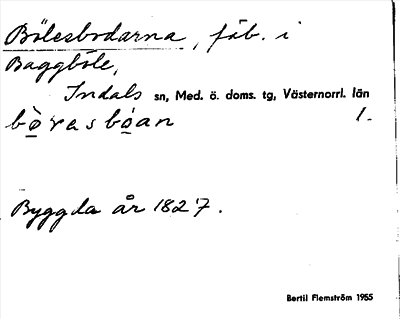 Bölesbodarna, fäb. i
Baggböle,
Indals sn, Med. ö. doms. tg, Västernorrl. län
bò̱rasbó̱an 1.
Byggda år 1827.
Bertil Flemström 1955